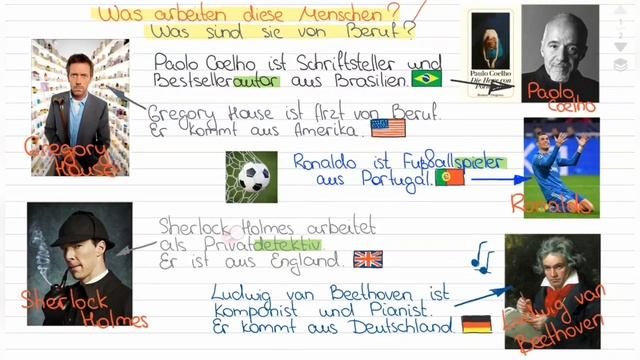 Was arbeiten diese Menschen?
Was sind sie von Beruf?
Paolo Coelho ist Schriftsteller und
Bestsellerautor aus Brasilien.
Paulo Coelho
Paolo
Coelho
Gregory House ist Arzt von Beruf.
Er kommt aus Amerika.
Gregory
House
Ronaldo ist Fußballspieler
aus Portugal.
Ronaldo
Sherlock Holmes arbeitet
als Privatdetektiv
Er ist aus England.
Sherlock
Holmes
Ludwig van Beethoven ist
Komponist und Pianist.
Er kommt aus Deutschland.
Ludwig van
Beethoven
1
2